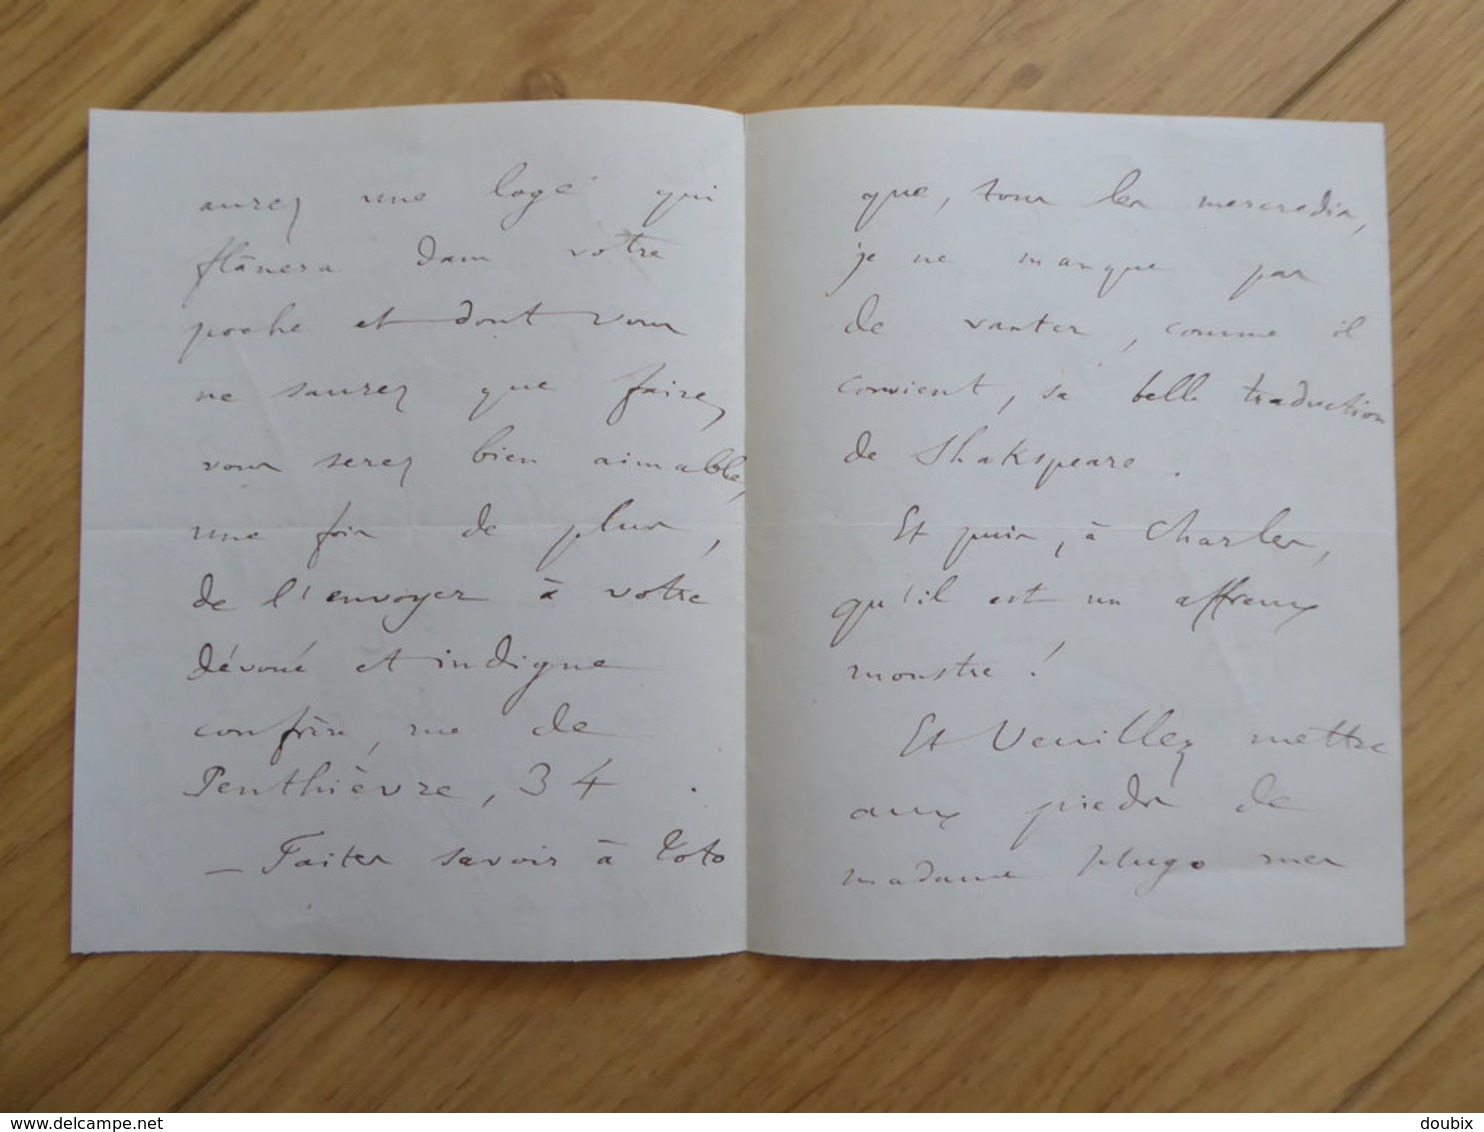 aurez une loge qui
flânera dans votre
poche et dont vous
ne saurez que faire,
vous serez bien aimable,
une fois de plus,
de l'envoyer à votre
dévoué et indigne
confrère, rue de
Penthièvre, 34.
— Faites savoir à Toto
que, tous les mercredis,
je ne manque pas
de vanter, comme il
convient, sa belle traduction
de Shakspeare.
Et puis, à Charles,
qu'il est un affreux
monstre !
Et Veuillez mettre
aux pieds de
madame Hugo mes
www.delcampe.net
doubix